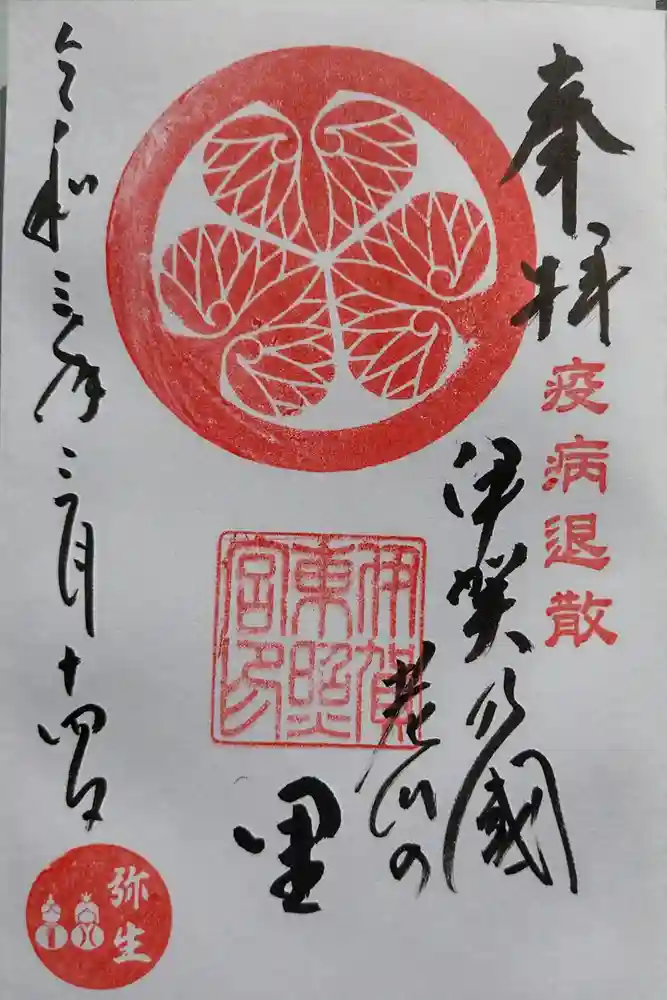 奉拝
疫病退散
伊賀乃國
老川の
里
伊賀
東照
宮印
令和三年三月十四日
弥生